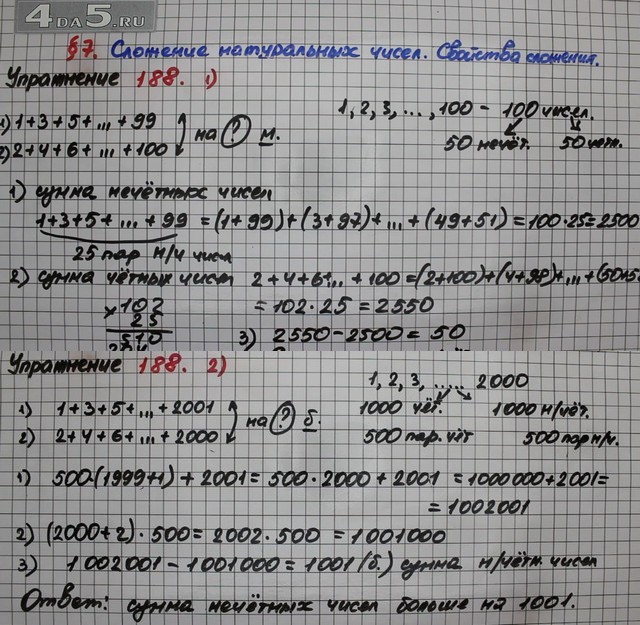 4DA5.RU
§7. Сложение натуральных чисел. Свойства сложения.
Упражнение 188. 1)
1) 1+3+5+...+99
2) 2+4+6+...+100
на ? м.
1, 2, 3, ..., 100 - 100 чисел.
50 нечёт. 50 четн.
1) сумма нечётных чисел
1+3+5+...+99 = (1+99)+(3+97)+...+(49+51)=100·25=2500
25 пар н/ч чисел
2) сумма чётных чисел 2+4+6+...+100=(2+100)+(4+98)+...+(50+52
×102
25
510
= 102·25 = 2550
3) 2550-2500= 50
Упражнение 188. 2)
1) 1+3+5+...+2001
2) 2+4+6+...+2000
на ? б.
1, 2, 3, ..... 2000
1000 чёт. 1000 н/чёт.
500 пар. чёт 500 пар н/ч.
1) 500·(1999+1) + 2001= 500·2000 + 2001 = 1000000+2001=
= 1002001
2) (2000+2)·500= 2002·500 = 1001000
3) 1002001 - 1001000 = 1001 (б.) сумма н/чётн. чисел
Ответ: сумма нечётных чисел больше на 1001.